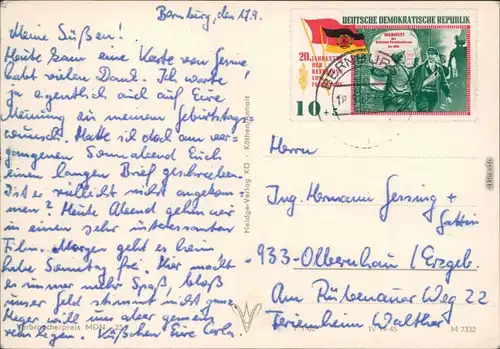 Bernburg, den 17.9.
Meine Süßen!
Heute kam eine Karte von Ferne
habt vielen Dank. Ich warte
ja eigentlich auch auf Eure
Meinung zu meinem Geburtstags-
wunsch. Hatte ich doch am ver-
gangenen Sonnabend Euch
einen langen Brief geschrieben
Ist er vielleicht nicht angekom-
men? Heute Abend gehen wir
in einen sehr interessanten
Film. Morgen geht es heim
habe Sonntag frei. Hier macht
es immer mehr Spaß, bloß
unser Geld stimmt nicht ganz
will uns aber gemein
Küßchen Eure Carla.
Verbraucherpreis MDN -,25
Heldge-Verlag KG · Köthen/Anhalt
DEUTSCHE DEMOKRATISCHE REPUBLIK
MANIFEST
20. JAHRESTAG
DER
BEFREIUNG
VOM
FASCHISMUS
10+5
BERNBURG
Herrn
Ing. Hermann Gessing +
Gattin
933-Olbernhau / Erzgeb.
Am Rübenauer Weg 22
Ferienheim Walther
IV-14-45
M 7332